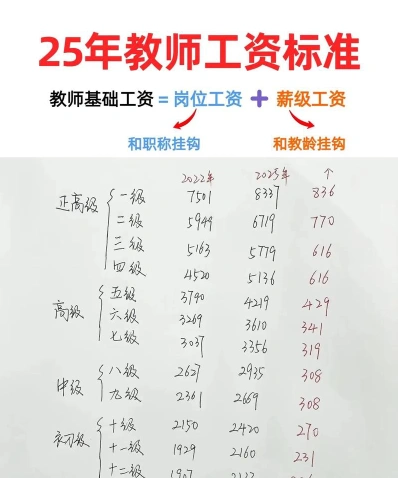 25年教师工资标准
教师基础工资=岗位工资+薪级工资
和职称挂钩 和教龄挂钩
2022年 2025年 ↑
正高级
一级 7501 8337 836
二级 5949 6719 770
三级 5163 5779 616
四级 4520 5136 616
高级
五级 3740 4219 429
六级 3269 3610 341
七级 3037 3356 319
中级
八级 2627 2935 308
九级 2361 2669 308
初级
十级 2150 2420 270
十一级 1929 2160 231
十二级 1907